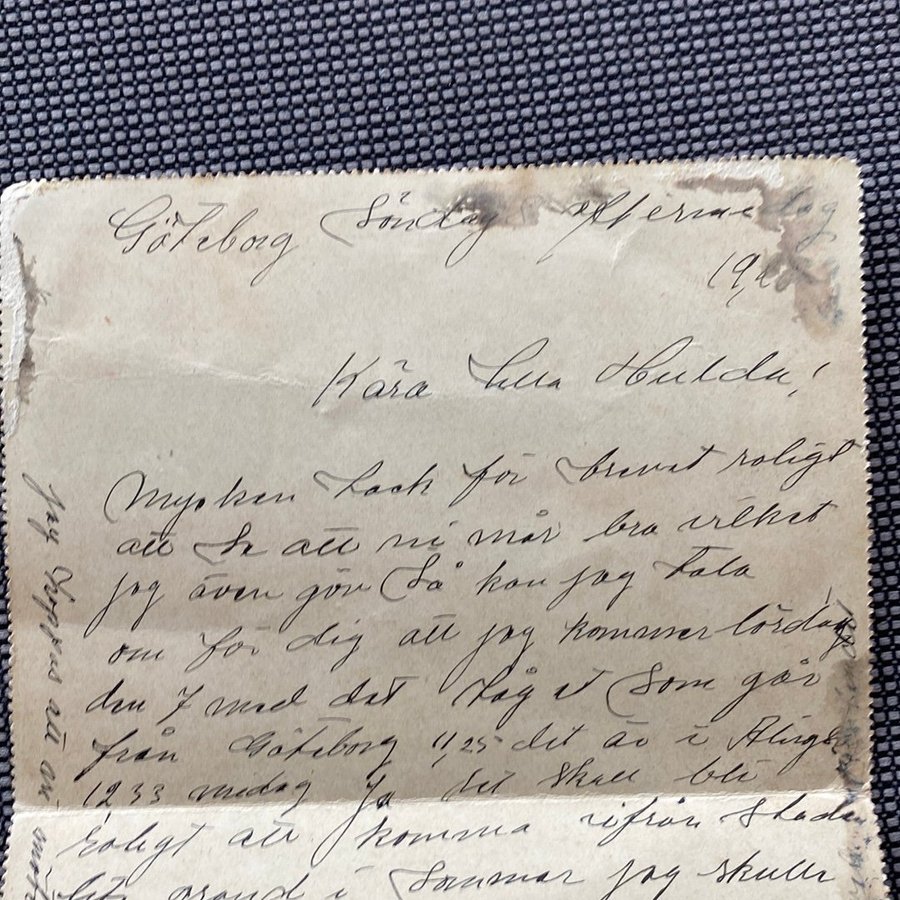 Göteborg Söndag Eftermedag
19
Kära lilla Hulda!
Mycken tack för brevet roligt
att Se att ni mår bra vilket
jag även gör Så kan jag tala
om för dig att jag kommer lördag
den 7 med det tåg et Som går
från Göteborg 11,25 det är i Alings
12 33 medag Ja det skall bli
roligt att komma ifrån Staden
lite grand i Sommar jag skulle
jag att